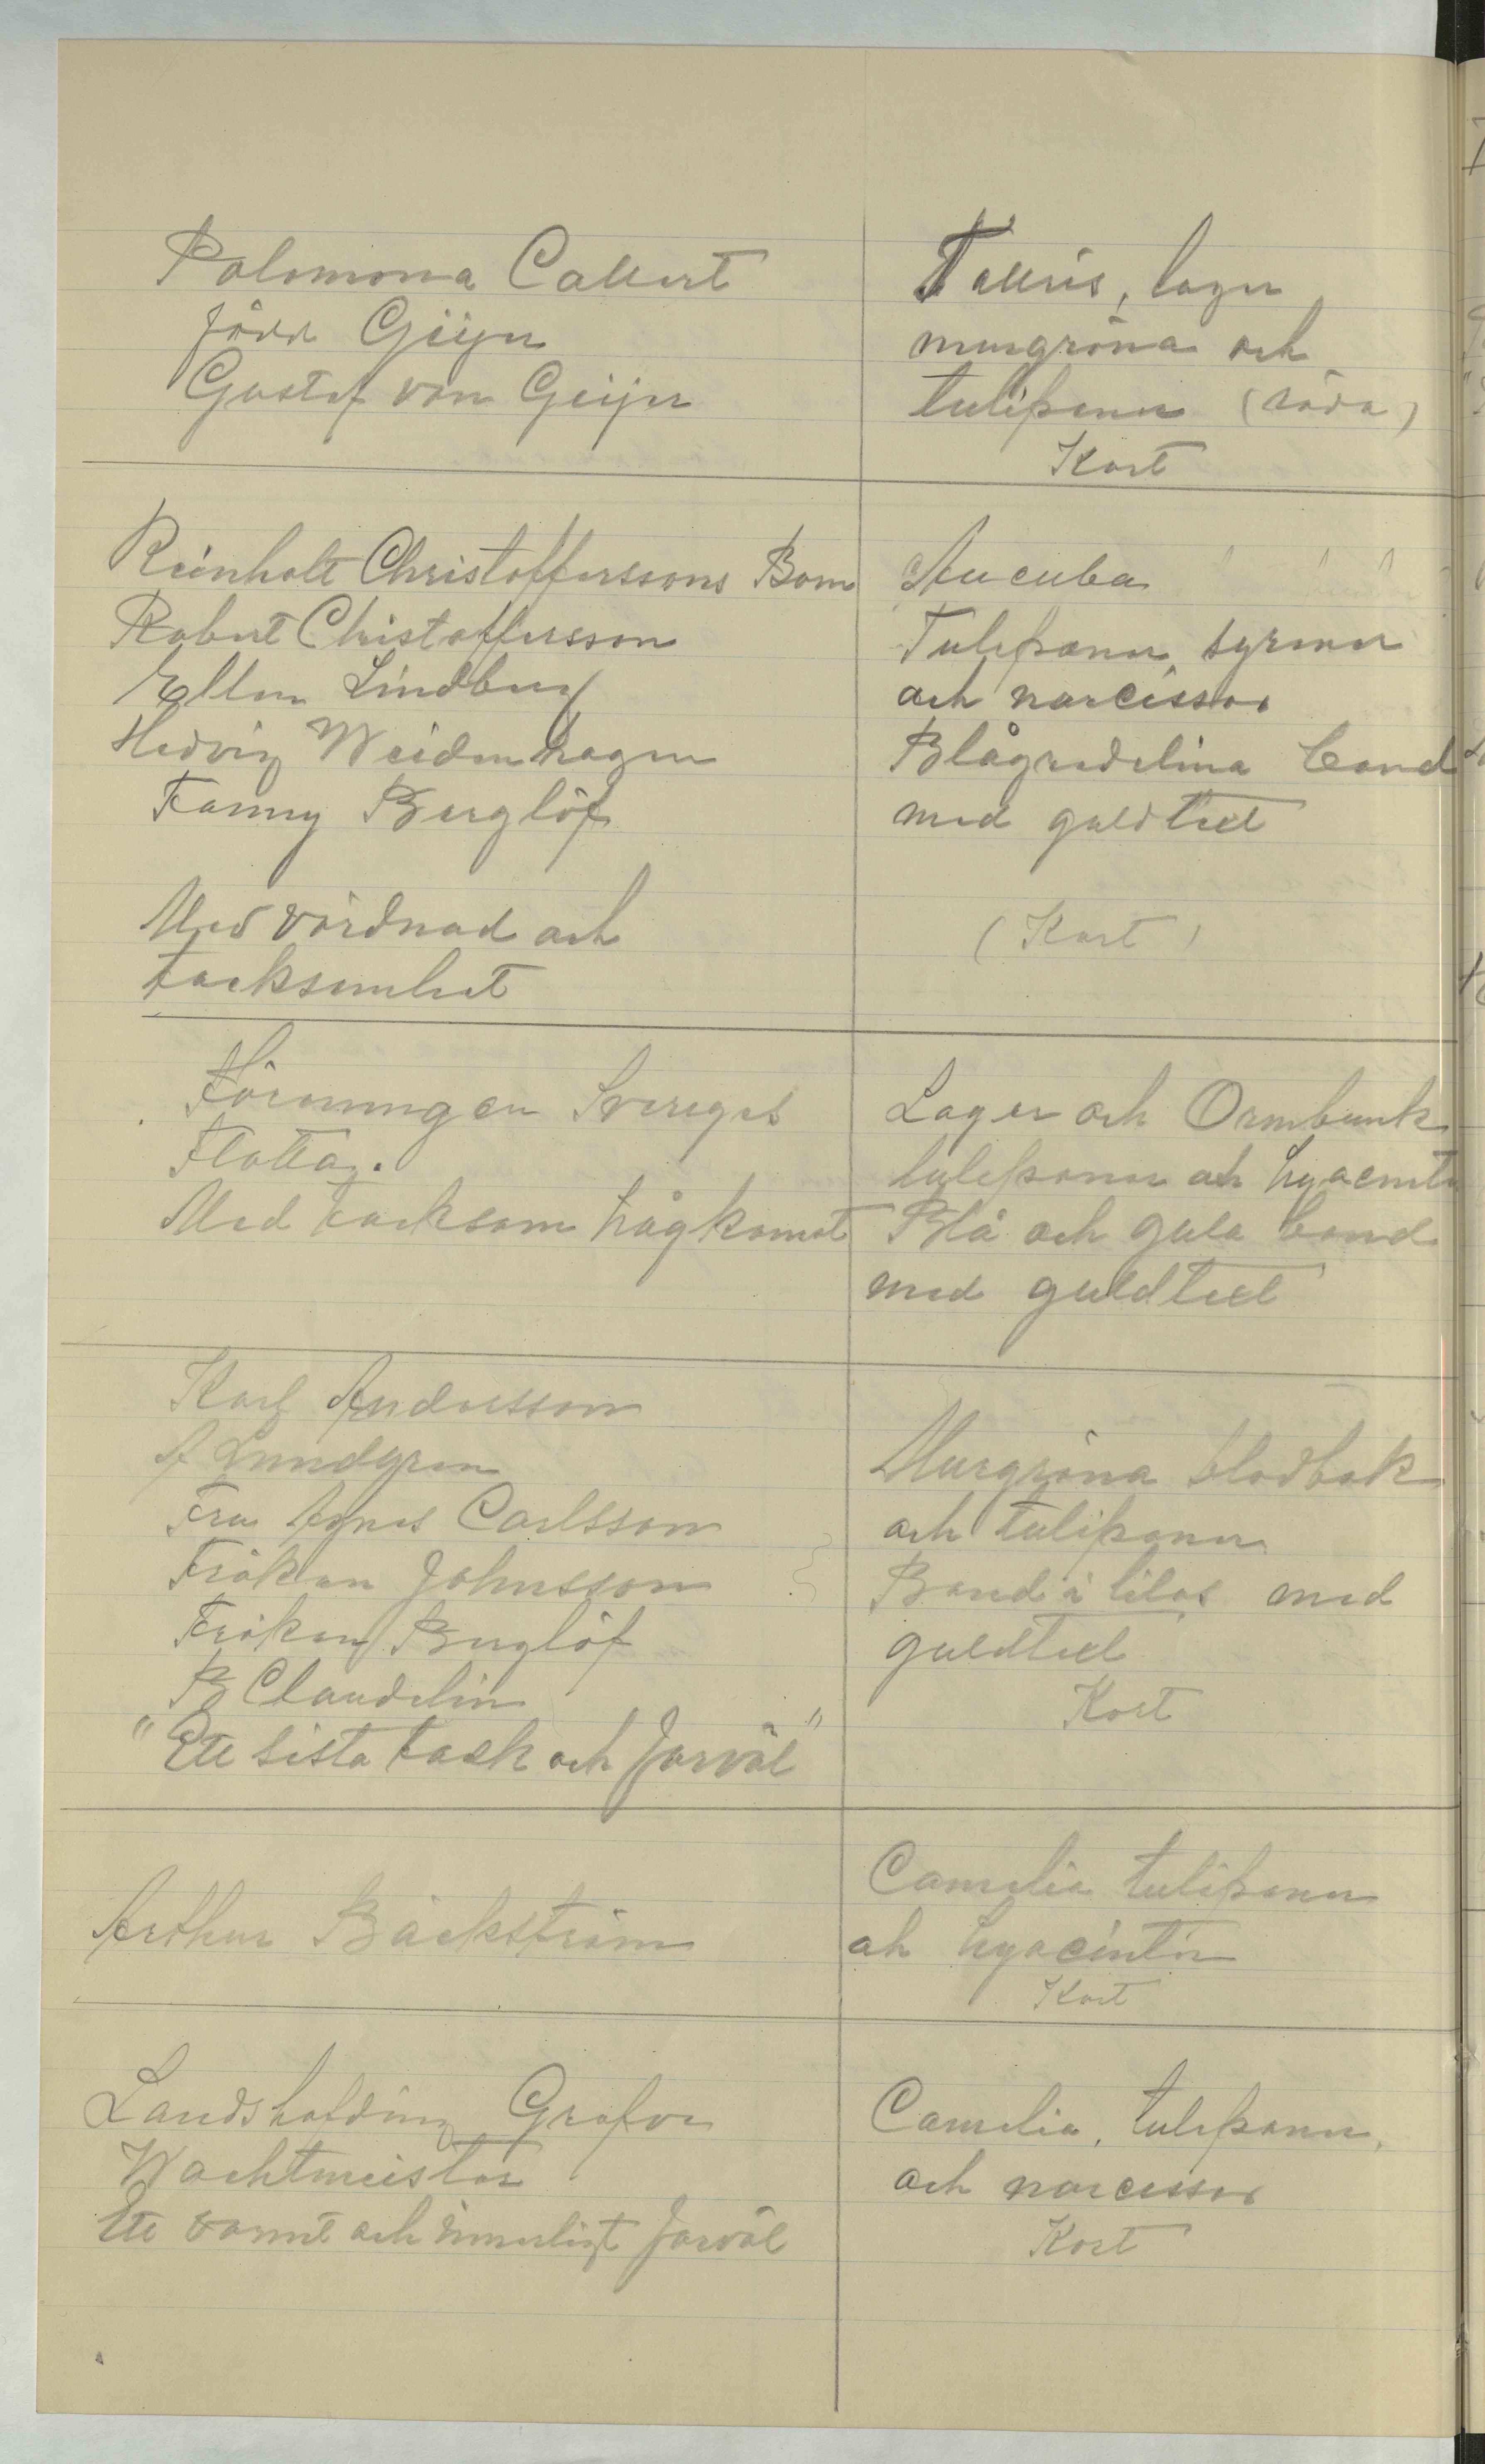 Palomona Calvert
född Geijer
Gustaf von Geijer
Tallris, lager
murgröna och
tulipaner (röda)
Kort
Reinholt Christofferssons Barn
Robert Christoffersson
Ellen Lindberg
Hedvig Weidenhagen
Fanny Berglöf
Med vördnad och
tacksamhet
Aucuba
Tulipaner, syrener
och narcisser
Blågredelina band
med guldtext
(Kort)
Föreningen Sveriges
Flotta.
Med tacksam hågkomst
Lager och Ormbunk
tulipaner och hyacinter
Blå och gula band
med guldtext
Karl Andersson
A Lundgren
Fru Agnes Carlsson
Fröken Johnsson
Fröken Berglöf
B Claudelin
"Ett sista tack och farväl"
Murgröna blodbok
och tulipaner
Band i lilas med
guldtext
Kort
Arthur Bäckström
Camelia tulipaner
och hyacinter
Kort
Landshöfding Grefve
Wachtmeister
Ett varmt och innerligt farväl
Camelia, tulipaner,
och narcisser
Kort